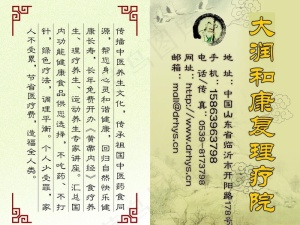 大润和康复理疗院
地址：中国山东省临沂市开阳路178号
手机：15863963798
电话\传真：0539-8173798
网址：http://www.drhys.cn
邮箱：mail@drhys.cn
传播中医养生文化，传承祖国中医药食同
源，帮您身心灵和谐健康，回归自然快乐健
康长寿，长年免费开办《黄帝内经》食疗养
生、理疗养生、运动养生专家讲座。汇总国
内功能健康食品供您选择，不吃药、不打
针，绿色疗法，调理平衡，个人少受罪，家
人不受累，节省医疗费，造福全人类。